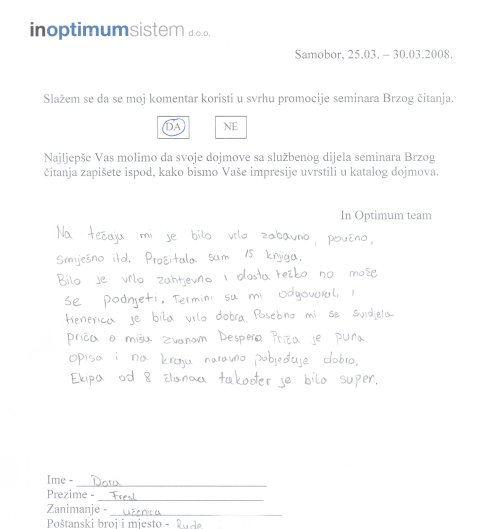 inoptimumsistem d.o.o.
Samobor, 25.03. – 30.03.2008.
Slažem se da se moj komentar koristi u svrhu promocije seminara Brzog čitanja.
DA NE
Najljepše Vas molimo da svoje dojmove sa službenog dijela seminara Brzog
čitanja zapišete ispod, kako bismo Vaše impresije uvrstili u katalog dojmova.
In Optimum team
Na tečaju mi je bilo vrlo zabavno, poučno,
smiješno itd. Pročitala sam 15 knjiga.
Bilo je vrlo zahtjevno i dosta teško no može
se podnjeti. Termini su mi odgovorali i
trenerica je bila vrlo dobra. Posebno mi se svidjela
priča o mišu zvanom Despero. Priča je puna
opisa i na kraju naravno pobjeđuje dobro.
Ekipa od 8 članaa također je bila super.
Ime - Dora
Prezime - Fresl
Zanimanje - učenica
Poštanski broj i mjesto - Rude